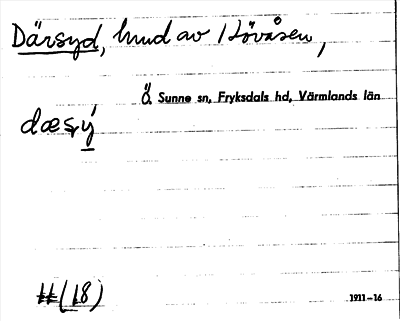 Därsyd, hund av Hövåsen,
Ö. Sunne sn, Fryksdals hd, Värmlands län
dæsý
(18)
1911–16